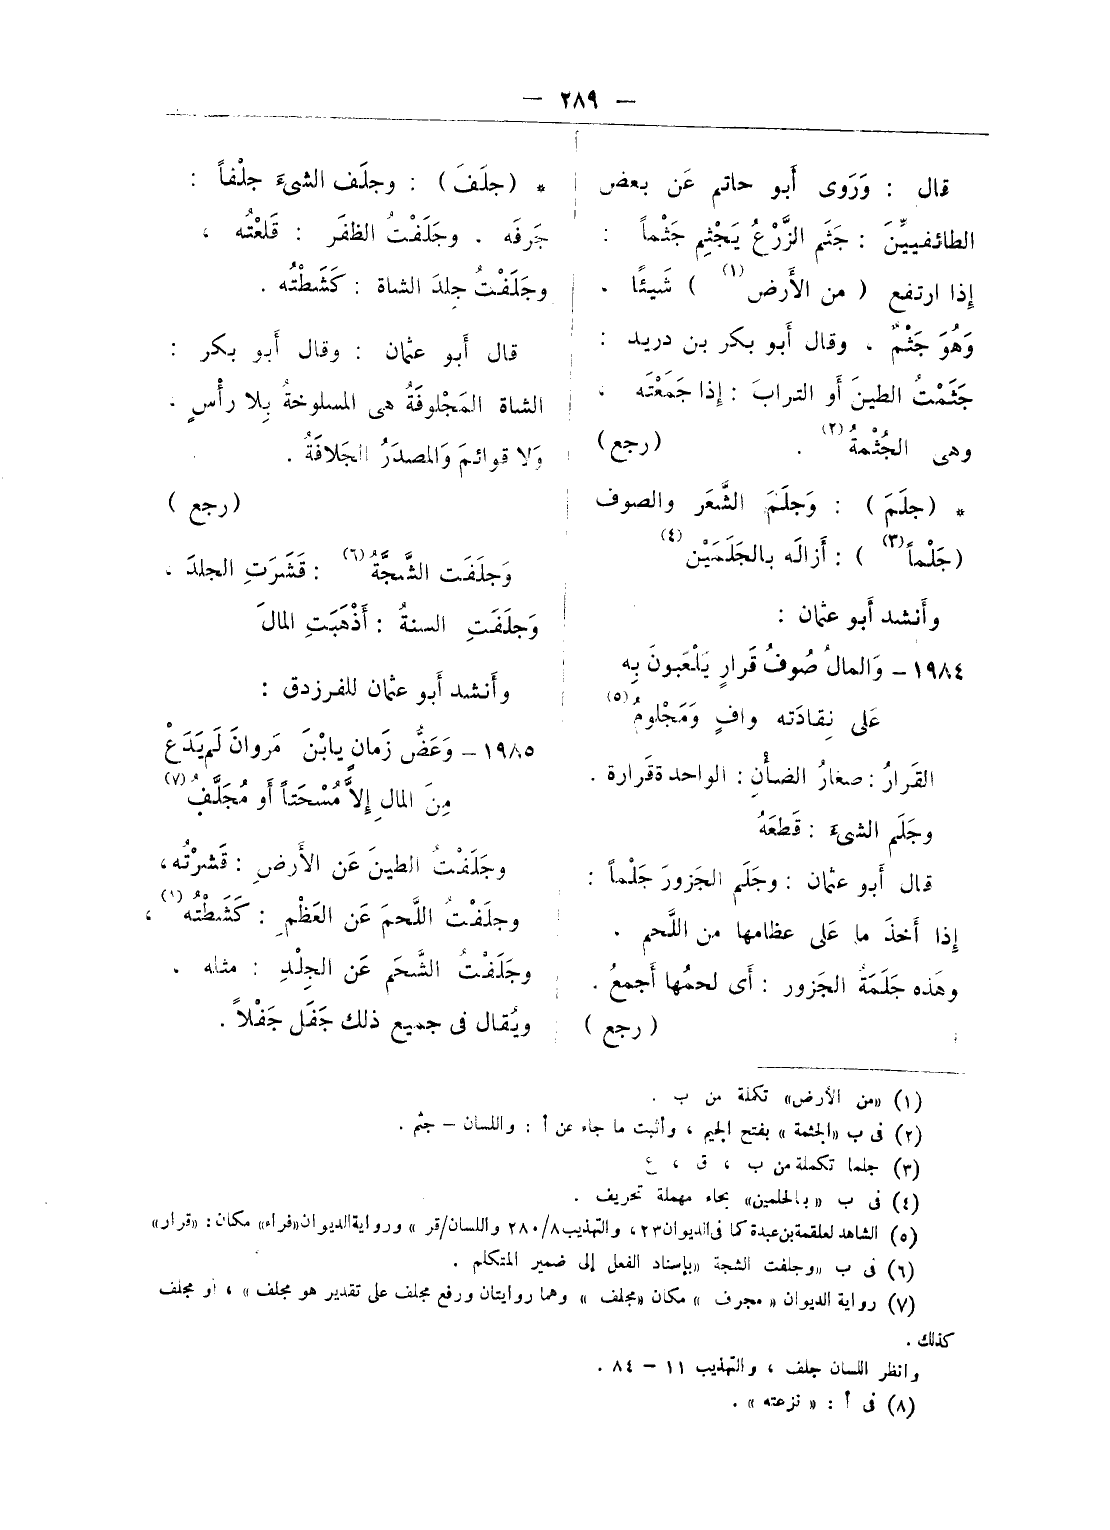 — ٢٨٩ —
قال : وَرَوى أَبو حاتم عَن بعض
الطائفييِّنَ : جَثَم الزَّرْعُ يَجْثِم جَثْماً :
إذا ارتفع ( من الأَرض (١) ) شَيئًا .
وَهُوَ جَثْمٌ ، وقال أَبو بكر بن دريد :
جَثَمْتُ الطينَ أَو الترابَ : إذا جَمَعْتَه ،
وهى الجُثْمةُ (٢) . (رجع)
* (جلَمَ) : وَجلَمَ الشَّعَر والصوف
(جَلْماً (٣) ) : أَزالَه بالجَلَمَيْن (٤)
وأَنشد أَبو عثمان :
١٩٨٤ – وَالمالُ صُوفُ قَرارٍ يَلْعَبونَ بِه
عَلى نِقادَته وافٍ وَمَجْلومُ (٥)
القَرارُ : صغارُ الضأْنِ : الواحدة قَرارة .
وجَلَم الشىءَ : قَطعَهُ
قال أَبو عثمان : وجَلَم الجَزورَ جَلْماً :
إذا أَخذَ ما عَلى عظامها من اللَّحم .
وهَذه جَلَمَةُ الجَزور : أَى لحمُها أَجمعُ .
( رجع )
* (جلَفَ) : وجلَف الشىءَ جلْفاً :
جَرفَه . وجَلَفْتُ الظفَر : قَلعْتُه ،
وجَلَفْتُ جِلدَ الشاة : كَشَطْتُه .
قال أَبو عثمان : وقال أَبو بكر :
الشاة المَجْلوفَةُ هى المسلوخةُ بِلا رأْسٍ ،
وَلا قوائمَ وَالمصدَرُ الجَلافَةُ .
(رجع )
وَجلَفَت الشَّجَّةُ (٦) : قَشَرَتِ الجلدَ ،
وَجلَفَتِ السنةُ : أَذْهَبَتِ المَالَ
وأَنشد أَبو عثمان للفرزدق :
١٩٨٥ – وَعَضُّ زَمانٍ يابْنَ مَروانَ لَم يَدَعْ
مِنَ المَالِ إلاَّ مُسْحَتاً أَو مُجَلَّفُ (٧)
وجَلَفْتُ الطينَ عَن الأَرضِ : قَشرْتُه ،
وجلَفْتُ اللَّحمَ عَن العَظْمِ : كَشَطْتُه (١) ،
وجَلَفْتُ الشَّحَم عَن الجِلْدِ : مثله .
ويُقال فى جميع ذلك جَفَل جَفْلاً .
(١) «من الأرض» تكملة من ب .
(٢) فى ب «الجثمة » بفتح الجيم ، وأثبت ما جاء عن أ : واللسان – جثم .
(٣) جلما تكملة من ب ، ق ، ع
(٤) فى ب «بالحلمين» بحاء مهملة تحريف .
(٥) الشاهد لعلقمة بن عبدة كما فى الديوان ٢٣ ، والتهذيب ٢٨٠/٨ واللسان/قر » ورواية الديوان «فراء» مكان : «قرار»
(٦) فى ب «وجلفت الشجة «بإسناد الفعل إلى ضمير المتكلم .
(٧) رواية الديوان « مجرف » مكان «مجلف » وهما روايتان ورفع مجلف على تقدير هو مجلف » ، أو مجلف
كذلك .
وانظر اللسان جلف ، والتهذيب ١١ – ٨٤ .
(٨) فى أ : « نزعته » .